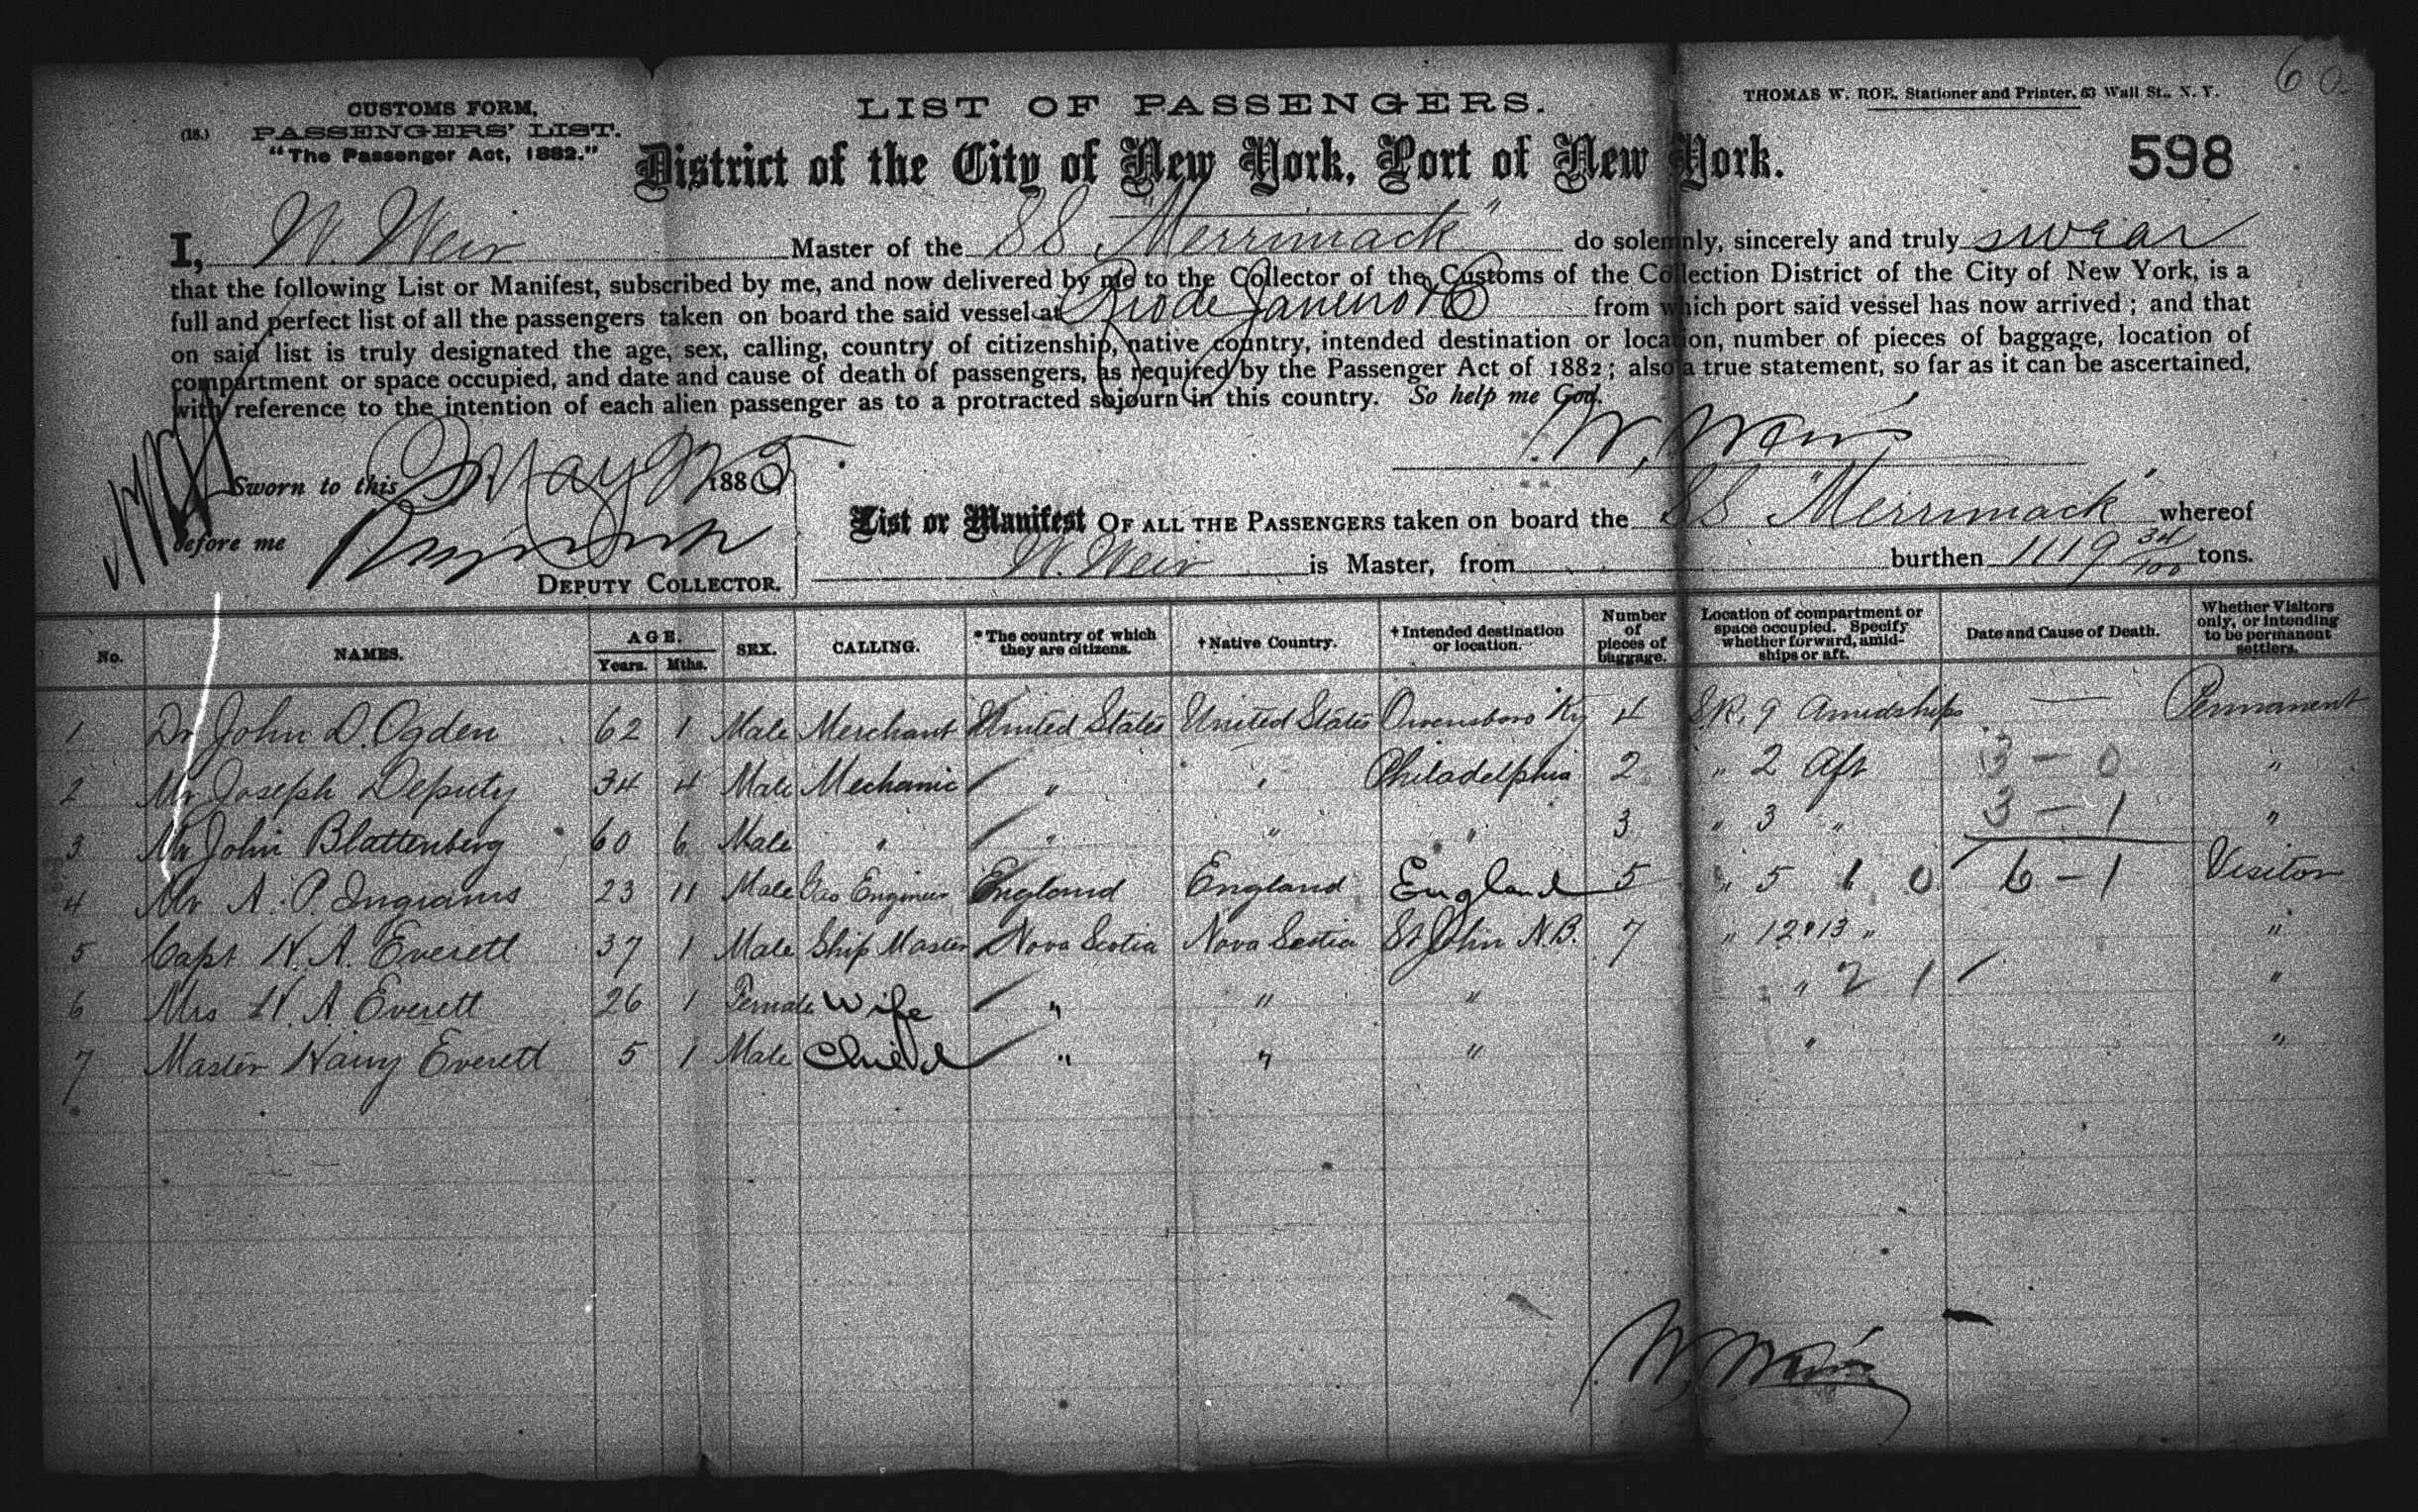 60
CUSTOMS FORM,
(18.) PASSENGERS' LIST.
"The Passenger Act, 1882."
LIST OF PASSENGERS.
THOMAS W. ROE, Stationer and Printer, 63 Wall St., N. Y.
District of the City of New York, Port of New York.
598
I, W. Weir Master of the SS "Merrimack" do solemnly, sincerely and truly swear
that the following List or Manifest, subscribed by me, and now delivered by me to the Collector of the Customs of the Collection District of the City of New York, is a
full and perfect list of all the passengers taken on board the said vessel at Rio de Janeiro from which port said vessel has now arrived; and that
on said list is truly designated the age, sex, calling, country of citizenship, native country, intended destination or location, number of pieces of baggage, location of
compartment or space occupied, and date and cause of death of passengers, as required by the Passenger Act of 1882; also a true statement, so far as it can be ascertained,
with reference to the intention of each alien passenger as to a protracted sojourn in this country. So help me God.
W. Weir
Sworn to this May 188
before me
DEPUTY COLLECTOR.
List or Manifest OF ALL THE PASSENGERS taken on board the SS "Merrimack" whereof
W. Weir is Master, from burthen 1119 34/100 tons.
No. NAMES. AGE. Years. Mths. SEX. CALLING. *The country of which they are citizens. †Native Country. †Intended destination or location. Number of pieces of baggage. Location of compartment or space occupied. Specify whether forward, amidships or aft. Date and Cause of Death. Whether Visitors only, or intending to be permanent settlers.
1 Dr John D. Ogden 62 1 Male Merchant United States United States Owensboro Ky 4 S.R. 9 Amidships — Permanent
2 Mr Joseph Deputy 34 4 Male Mechanic " " Philadelphia 2 " 2 Aft 3 — 0 "
3 Mr John Blattenberg 60 6 Male " " " " 3 " 3 " 3 — 1 "
4 Mr A. P. Ingrams 23 11 Male Gas Engineer England England England 5 " 5 1 0 6 — 1 Visitor
5 Capt H. A. Everett 37 1 Male Ship Master Nova Scotia Nova Scotia St John N.B. 7 " 12 & 13 " "
6 Mrs H. A. Everett 26 1 Female Wife " " " " 2 1 "
7 Master Harry Everett 5 1 Male Child " " " " "
W. Weir